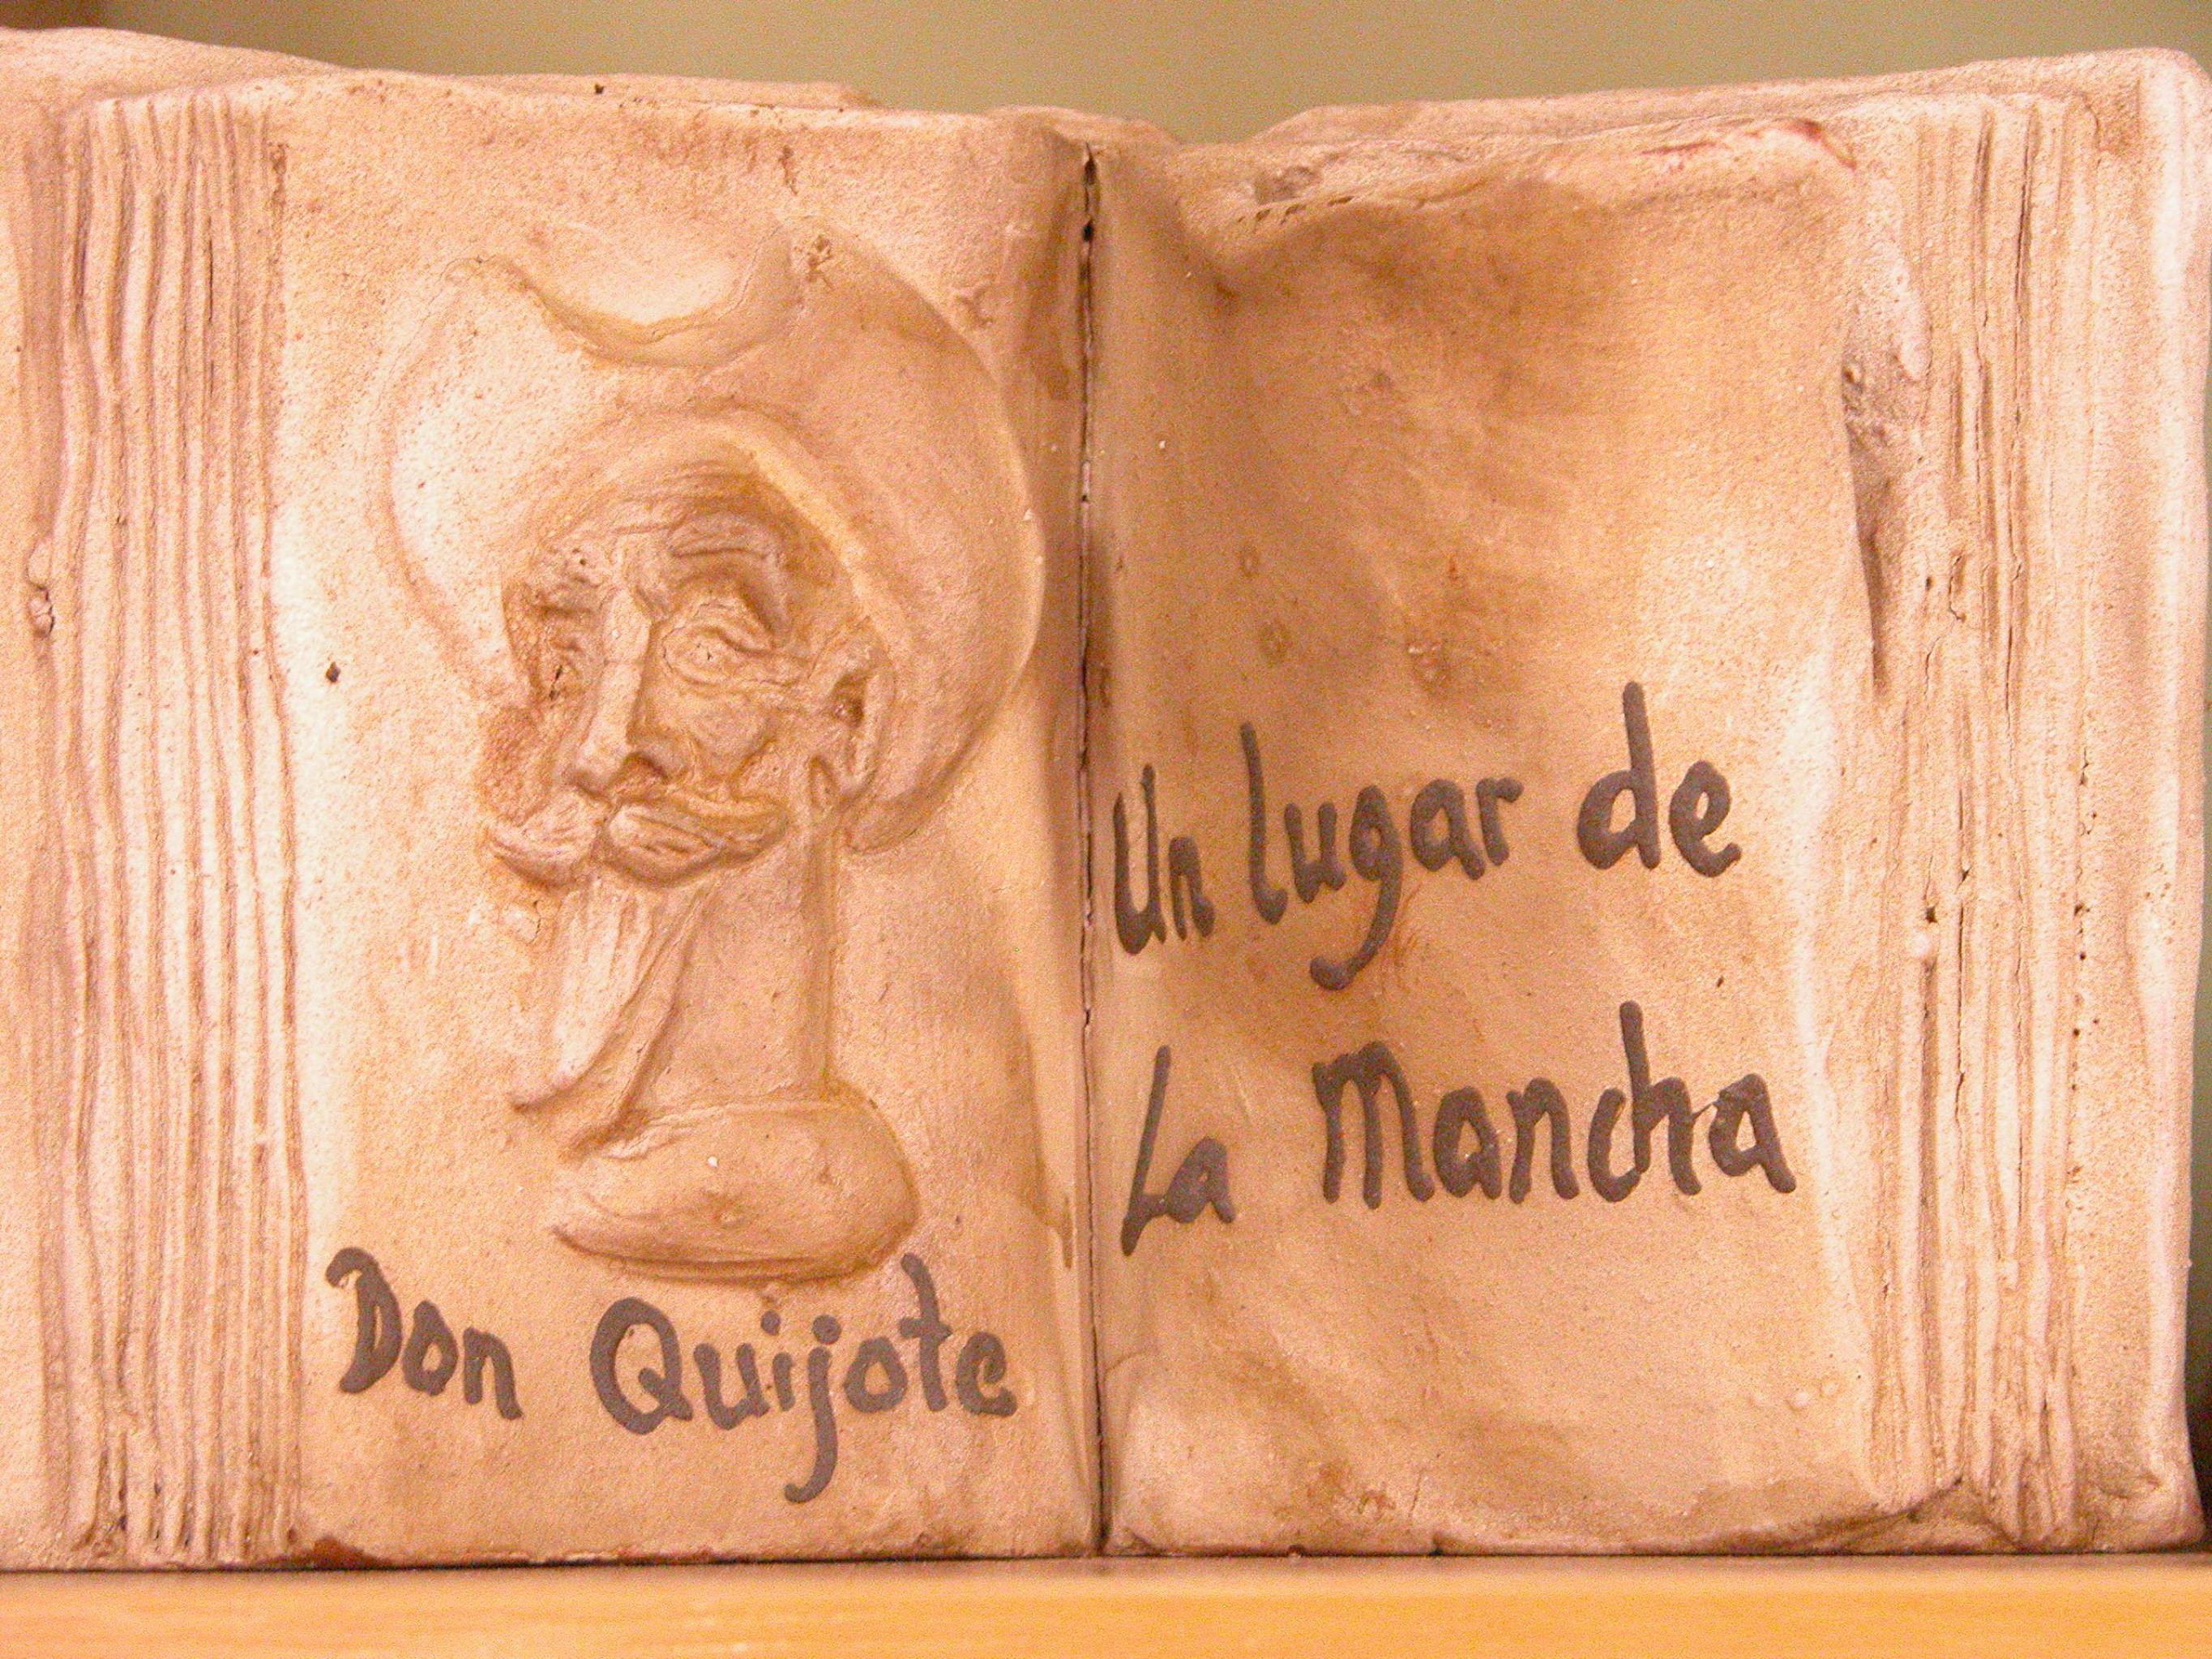 Don Quijote
Un lugar de
La Mancha